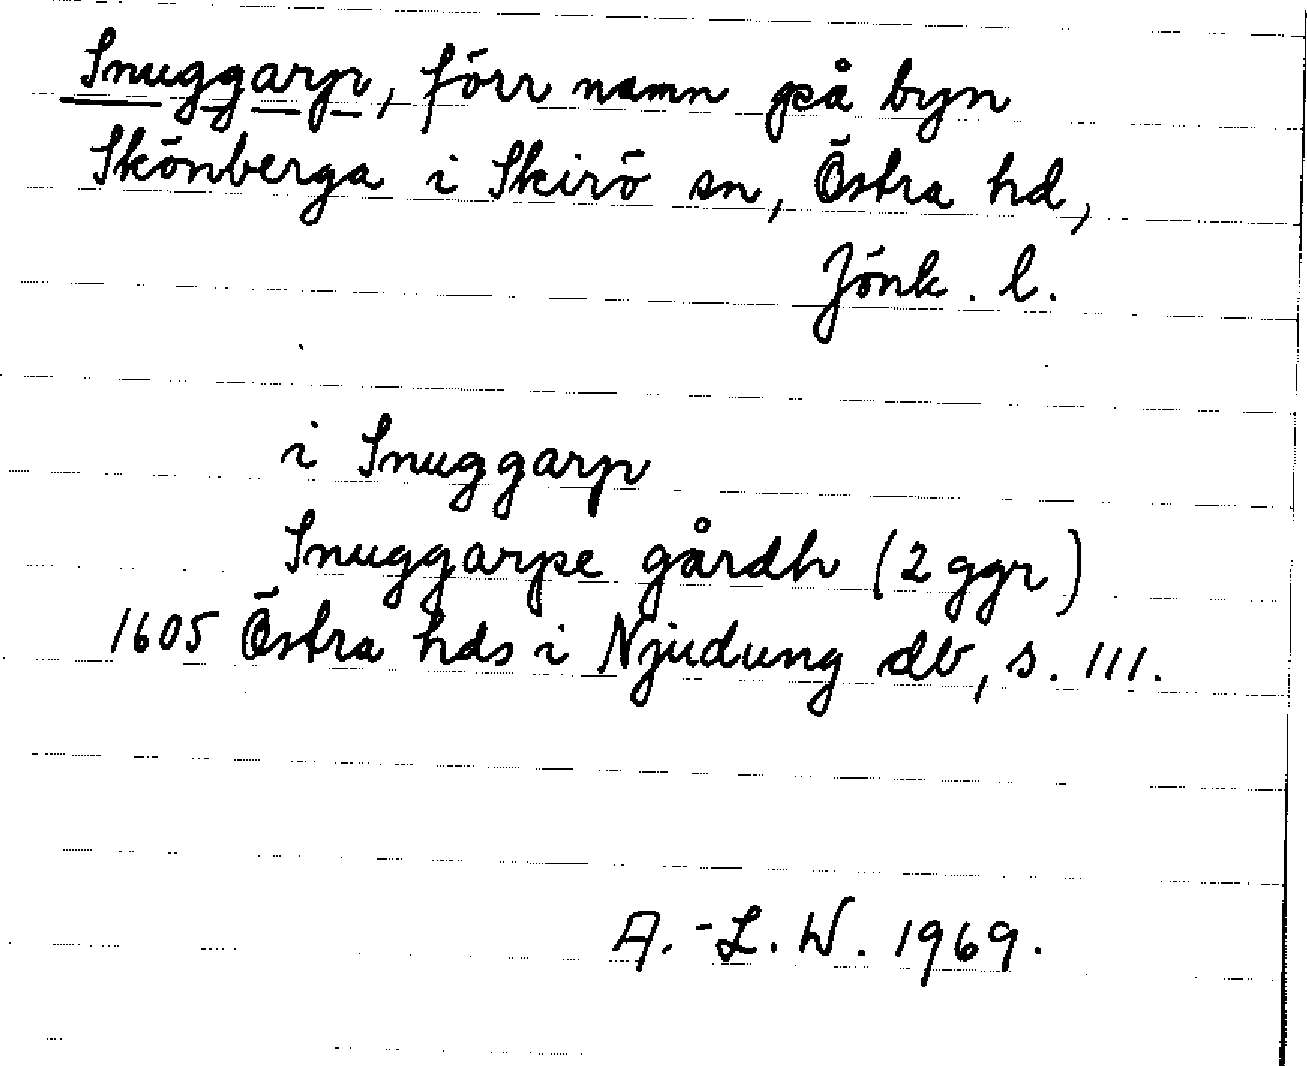 Snuggarp, förr namn på byn
Skönberga i Skirö sn, Östra hd,
Jönk. l.
i Snuggarp
Snuggarpe gårdh (2 ggr)
1605 Östra hds i Njudung db, s. 111.
A.-L. W. 1969.